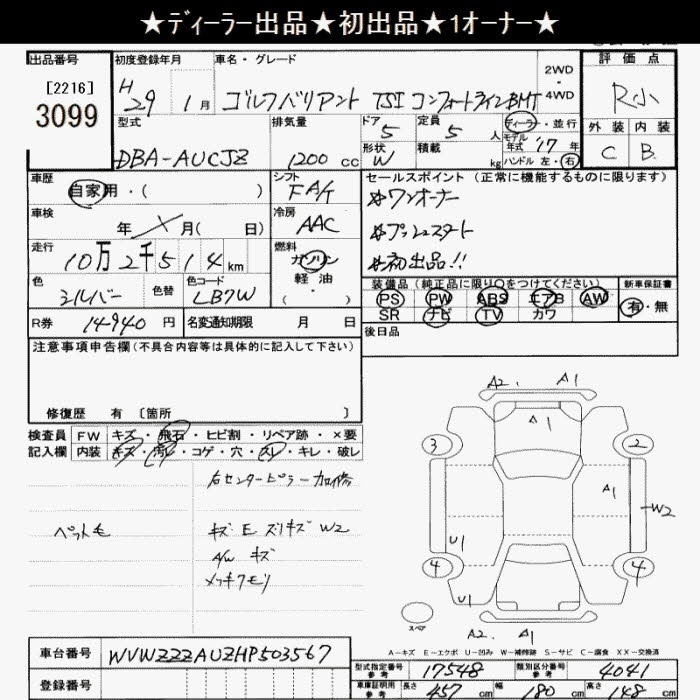 ★ディーラー出品★初出品★1オーナー★
出品番号
[2216]
3099
初度登録年月
H
29 1月
車名・グレード
ゴルフバリアント TSI コンフォートラインBMT
2WD
・
4WD
評価点
R小
外装 内装
C B
型式
DBA-AUCJZ
排気量
1200 cc
ドア
5
形状
W
定員
5 人
積載
kg
ディーラー・並行
モデル
年式 '17 年
ハンドル 左・右
車歴
自家用・( )
シフト
FA/T
車検
年 月( 日)
冷房
AAC
走行
10万2千514km
燃料
ガソリン
軽油
( ・ )
色
シルバー
色替
色コード
LB7W
R券 14940 円
名変通知期限 月 日
セールスポイント(正常に機能するものに限ります)
※ワンオーナー
※プッシュスタート
※初出品!!
装備品(純正品に限り○をつけてください)
PS PW ABS エアB AW
SR ナビ TV カワ
新車保証書
有・無
後日品
注意事項申告欄(不具合内容等は具体的に記入して下さい)
修復歴 有 [箇所 ]
検査員
記入欄
FW キズ・飛石・ヒビ割・リペア跡・×要
内装 キズ・汚レ・コゲ・穴・スレ・キレ・破レ
右センターピラー加修
ペット毛
キズ E ズリキズ W2
A/W キズ
メッキクモリ
A2. A1
A1
3 2
A1
W2
U1
4 4
U1
スペア
A2. A1
A-キズ E-エクボ U-凹み W-補修跡 S-サビ C-腐食 XX-交換済
車台番号 WVWZZZAUZHP503567
登録番号
型式指定番号
参考
17548
類別区分番号
参考
4041
車庫証明用
参考
長さ 457 cm
幅 180 cm
高さ 148 cm